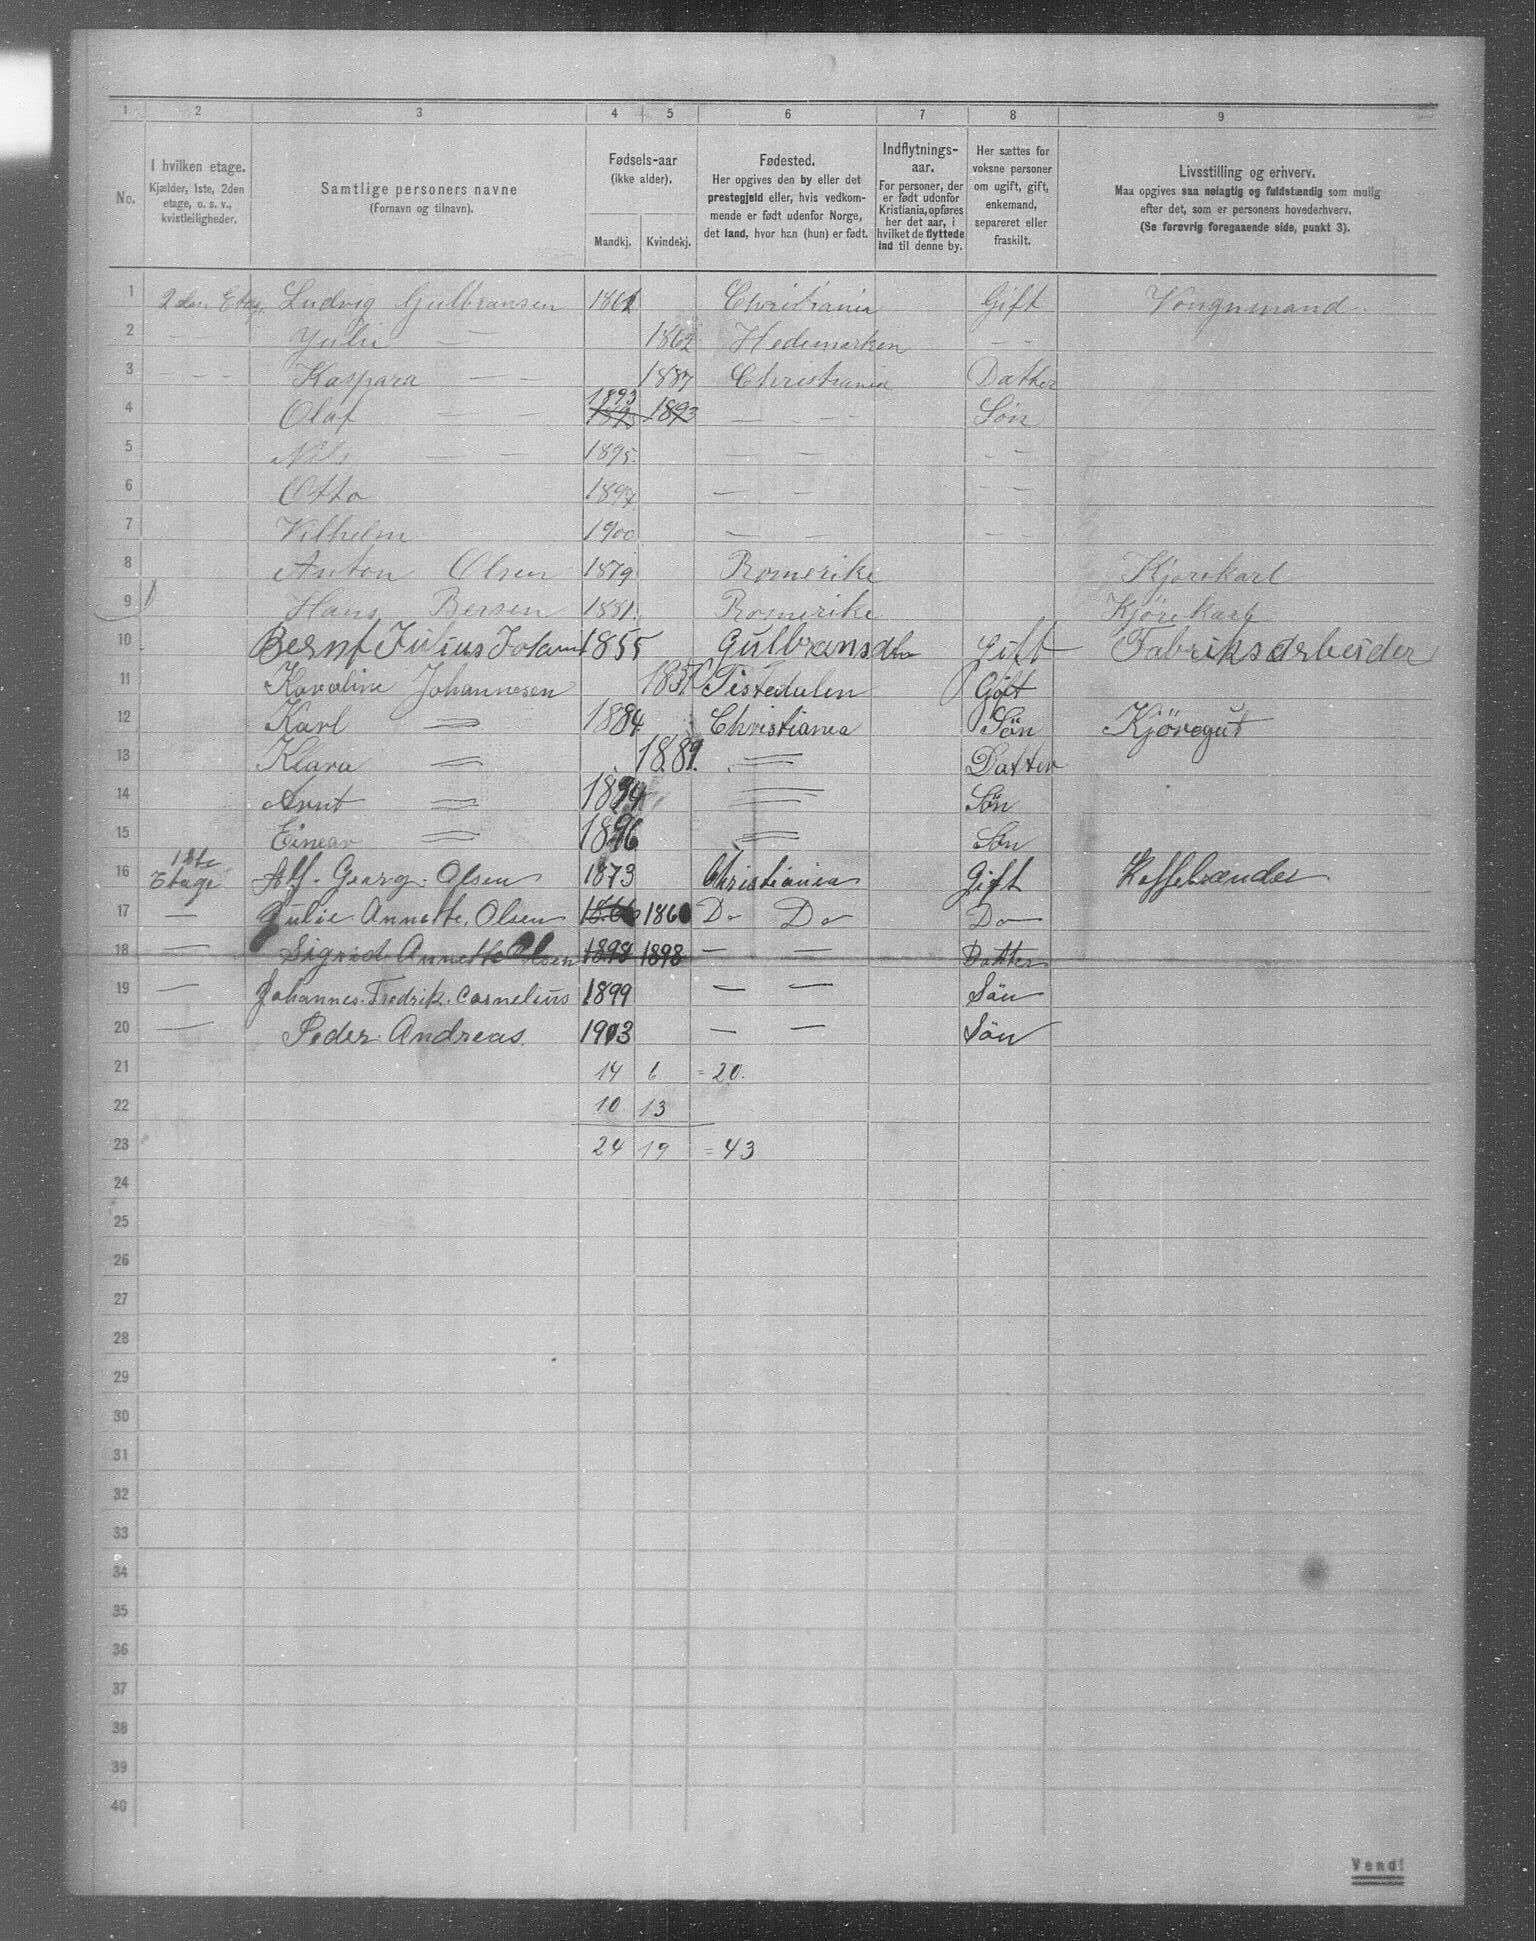 1 2 3 4 5 6 7 8 9
No.
I hvilken etage.
Kjælder, 1ste, 2den
etage, o. s. v.,
kvistleiligheder.
Samtlige personers navne
(Fornavn og tilnavn).
Fødsels-aar
(ikke alder).
Mandkj. Kvindekj.
Fødested.
Her opgives den by eller det
prestegjeld eller, hvis vedkom-
mende er født udenfor Norge,
det land, hvor han (hun) er født.
Indflytnings-
aar.
For personer, der
er født udenfor
Kristiania, opføres
her det aar, i
hvilket de flyttede
ind til denne by.
Her sættes for
voksne personer
om ugift, gift,
enkemand,
separeret eller
fraskilt.
Livsstilling og erhverv.
Maa opgives saa nøiagtig og fuldstændig som mulig
efter det, som er personens hovederhverv.
(Se forøvrig foregaaende side, punkt 3).
1 2den Etag. Ludvig Gulbransen 1861 Christiania Gift Vongnmand
2 Yulie — 1862 Hedemarken - -
3 - - - Kaspara — — 1887 Christiania Datter
4 Olaf — — 1893 1893 — - - Søn
5 Nils — — 1895 — — - -
6 Otto 1897 — — - -
7 Vilhelm 1900 — — - -
8 Anton Olsen 1879 Romerike Kjørekarl
9 Hans Bersen 1881 Romerike Kjørekarl
10 Bernt Julius Johann 1855 Gulbrands Gift Fabriksarbeider
11 Karoline Johannesen Tistedalen Gift
12 Karl = 1884 Christiania Søn Kjöregut
13 Klara = 1889. = Datter
14 Arnt = 1894 = Sön
15 Einear = 1896 = Søn
16 1ste Etage Alf. Georg. Olsen 1873 Christiania Gift Kaffebrænder
17 — Julie Annette. Olsen 1860 Do Do Do
18 — Sigrid Annette Olsen 1898 1898 — — Datter
19 — Johannes. Fredrik. Cornelius 1899 — — Sön
20 — Peder Andreas. 1903 — — Sön
21 14 6 = 20.
22 10 13
23 24 19 = 43
24
25
26
27
28
29
30
31
32
33
34
35
36
37
38
39
40
Vend!